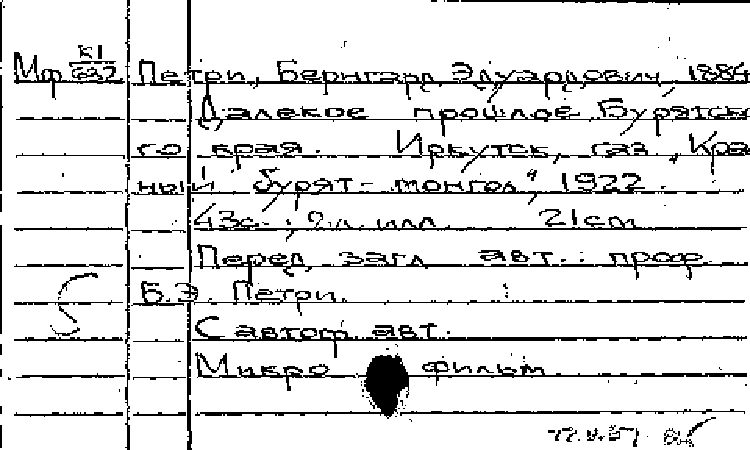 Мф К1 Петри, Бернгард Эдуардович, 1884
Далекое прошлое Бурятск
го края. Иркутск, газ. „Кра
ный бурят-монгол", 1922.
43с.; 2 л. илл. 21 cm
Перед загл. авт.: проф.
Б.Э. Петри.
С автогр. авт.
Микро фильм